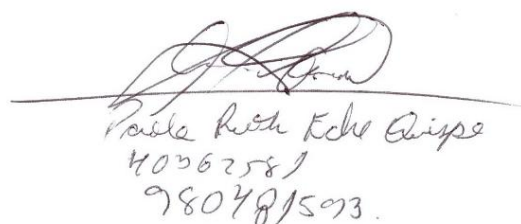 Paola Ruth Eche Quispe
40362581
980481593.